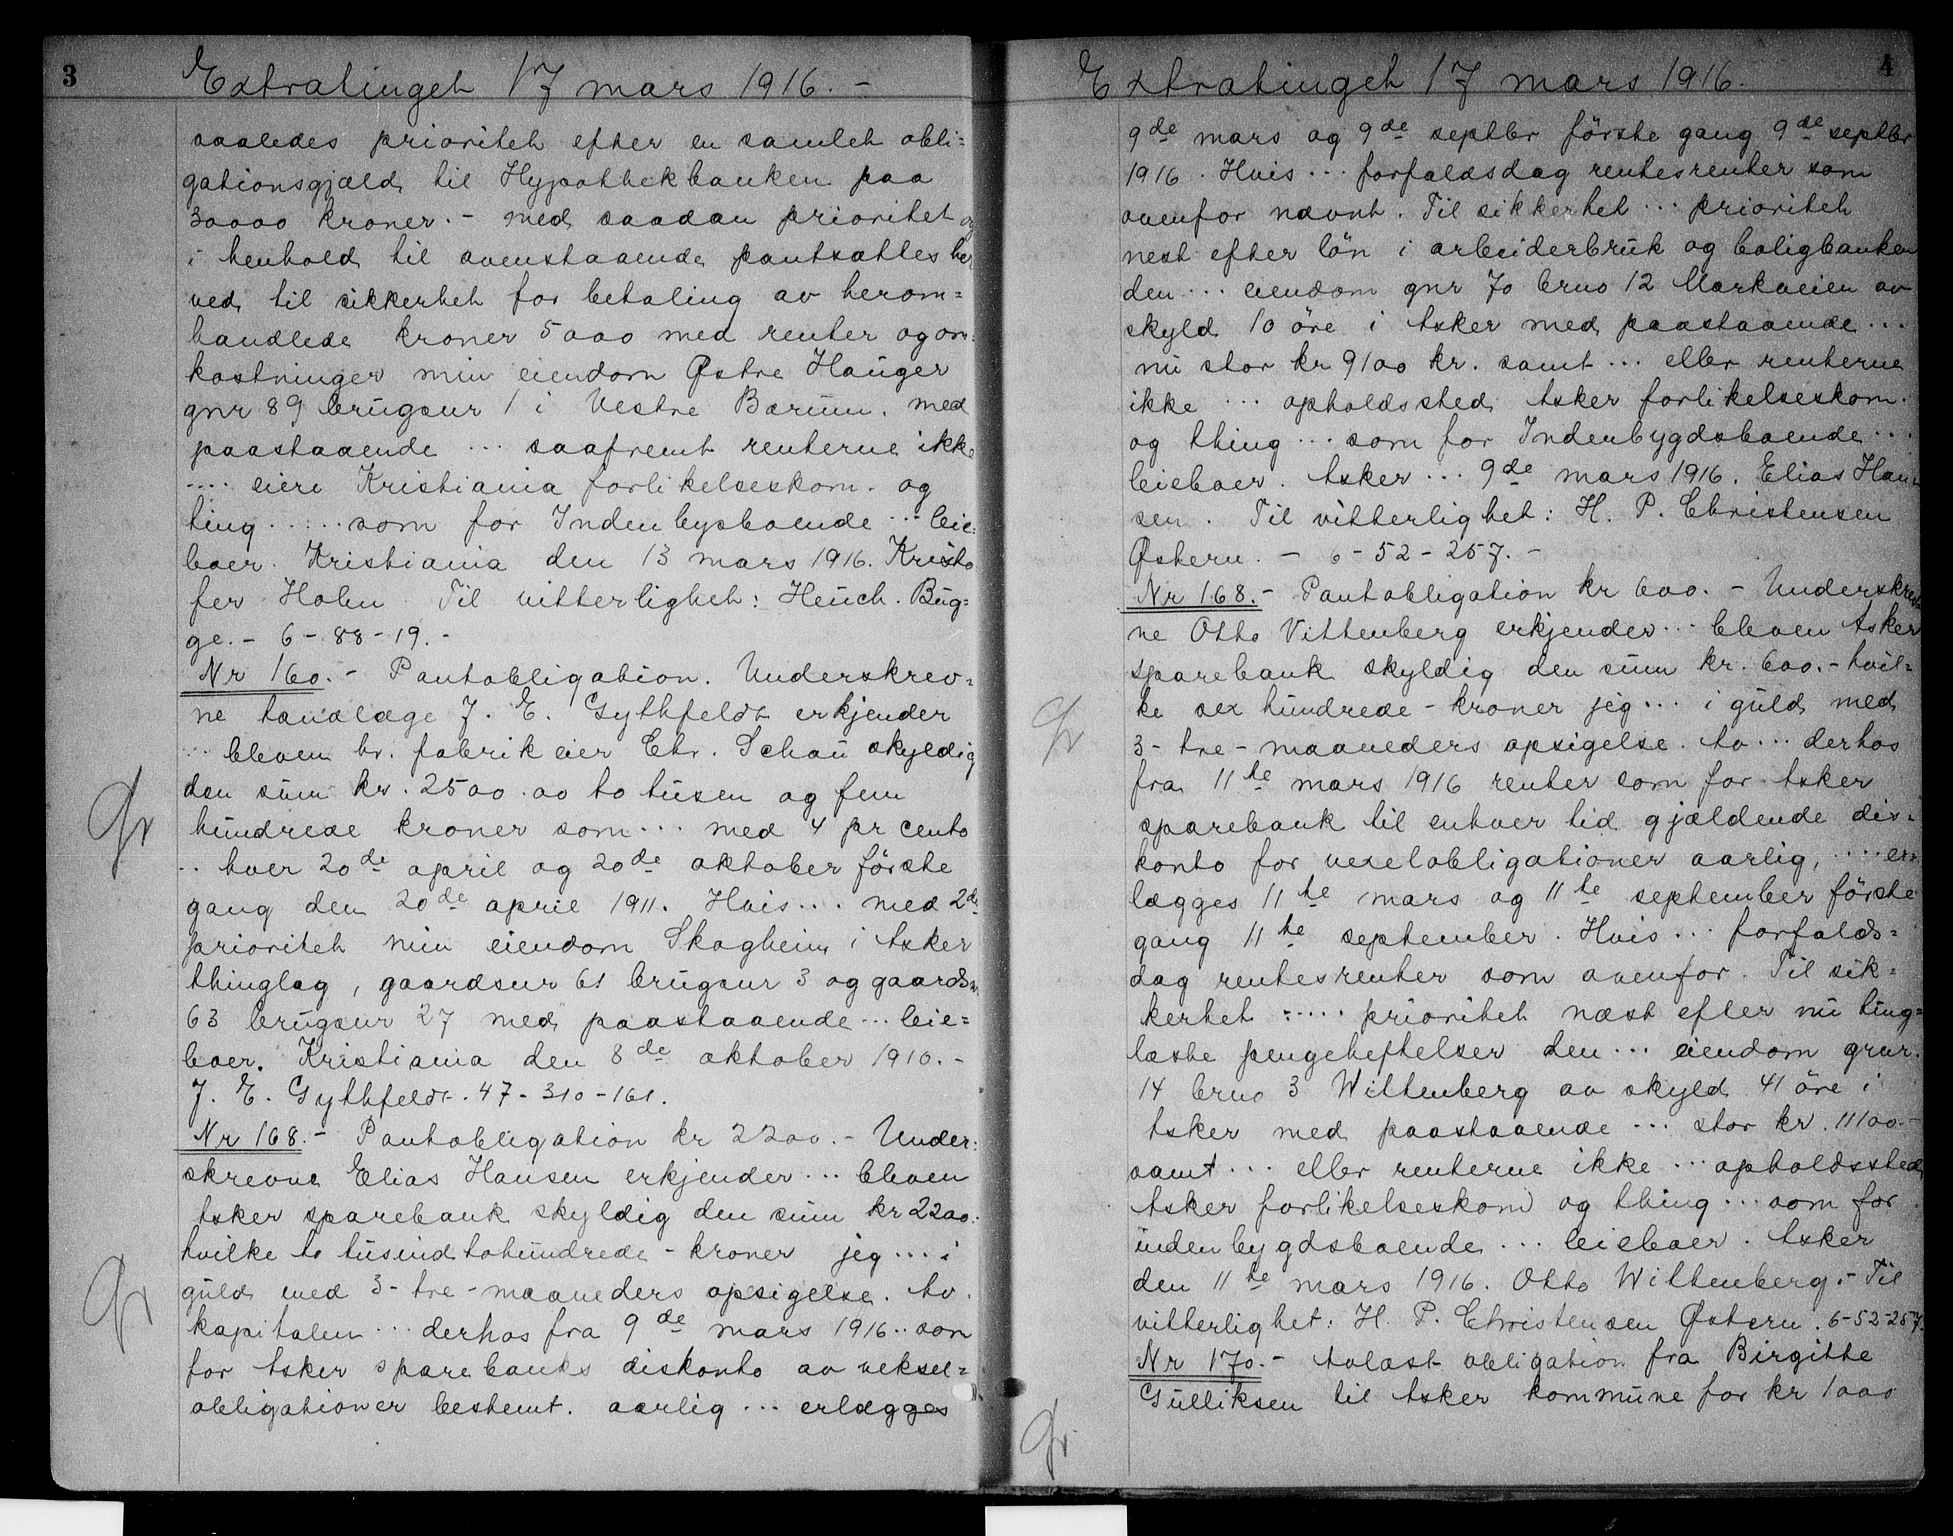 3
Extratinget 17 mars 1916. –
saaledes prioritet efter en samlet obli=
gationsgjæld til Hypothekbanken paa
30000 kroner. – med saadan prioritet og
i henhold til ovenstaaende pantsættes her
ved til sikkerhet for betaling av herom=
handlede kroner 5000 med renter og om=
kostninger min eiendom Østre Hauger
gnr 89 brugsnr 1 i Vestre Bærum. med
paastaaende ... saafremt renterne ikke
.... eiere Kristiania forlikelseskom. og
ting ..... som for Indenbysboende ... leie=
boer. Kristiania den 13 mars 1916. Kristo
fer Holm. Til vitterlighet: Heuch. Bug=
ge. – 6 – 88 – 19. –
Nr 160. – Pantobligation. Underskrev=
ne tandlæge J. E. Gythfeldt erkjender
... bleven hr. fabrikeier Chr. Schou skyldig
den sum kr. 2500.00 to tusen og fem
hundrede kroner som ... med 4 pr cento
.. hver 20de april og 20de oktober første
gang den 20de april 1911. Hvis .... med 2den
prioritet min eiendom Skogheim i Asker
thinglag, gaardsnr 61 brugsnr 3 og gaardsnr
63 brugsnr 27 med paastaaende ... leie=
boer. Kristiania den 8de oktober 1910. –
J. E. Gythfeldt. 47 – 310 – 161.
Nr 168. – Pantobligation kr 2200. – Under=
skrevne Elias Hansen erkjender ... bleven
Asker sparebank skyldig den sum kr 2200.
hvilke to tusind tohundrede – kroner jeg .... i
guld med 3 – tre – maaneders opsigelse. Av.
kapitalen ... derhos fra 9de mars 1916 .. som
for Asker sparebanks diskonto av veksel=
obligationer bestemt. aarlig ... erlægges
Gr
Gr
4
Extratinget 17 mars 1916.
9de mars og 9de septbr første gang 9de septbr
1916. Hvis ... forfaldsdag rentesrenter som
ovenfor nævnt. Til sikkerhet ... prioritet
nest efter lån i arbeiderbruk og boligbanken
den ... eiendom gnr 70 brno 12 Markveien av
skyld 10 öre i Asker med paastaaende ...
nu stor kr 9100 kr. samt ... eller renterne
ikke ... opholdssted Asker forlikelseskom.
og thing ... som for Indenbygdsboende ...
leieboer. Asker ... 9de mars 1916. Elias Han=
sen. Til vitterlighet: H. P. Christensen
Østern. – 6 – 52 – 257. –
Nr 168. – Pantobligation kr 600. – Underskrev
ne Otto Vittenberg erkjender ... bleven Asker
sparebank skyldig den sum kr. 600. – hvil=
ke sex hundrede – kroner jeg ... i guld med
3 – tre – maaneders opsigelse. Av ... derhos
fra 11te mars 1916 renter som for Asker
sparebank til enhver tid gjældende dis=
konto for vexelobligationer aarlig, .... er=
lægges 11te mars og 11te september første
gang 11te september. Hvis ... forfalds=
dag rentesrenter som ovenfor. Til sik=
kerhet ..... prioritet næst efter nu ting=
læste pengeheftelser den ... eiendom grnr.
14 brno 3 Wittenberg av skyld 41 öre i
Asker med paastaaende ... stor kr. 11100. –
samt ... eller renterne ikke ... opholdssted
Asker forlikelseskom og thing ... som for
indenbygdsboende ... leieboer. Asker
den 11te mars 1916. Otto Wittenberg. – Til
vitterlighet: H. P. Christensen Østern. 6 – 52 – 257.
Nr 170. – Avlæst obligation fra Birgitte
Gulliksen til Asker kommune for kr 1000
Gr
Gr.